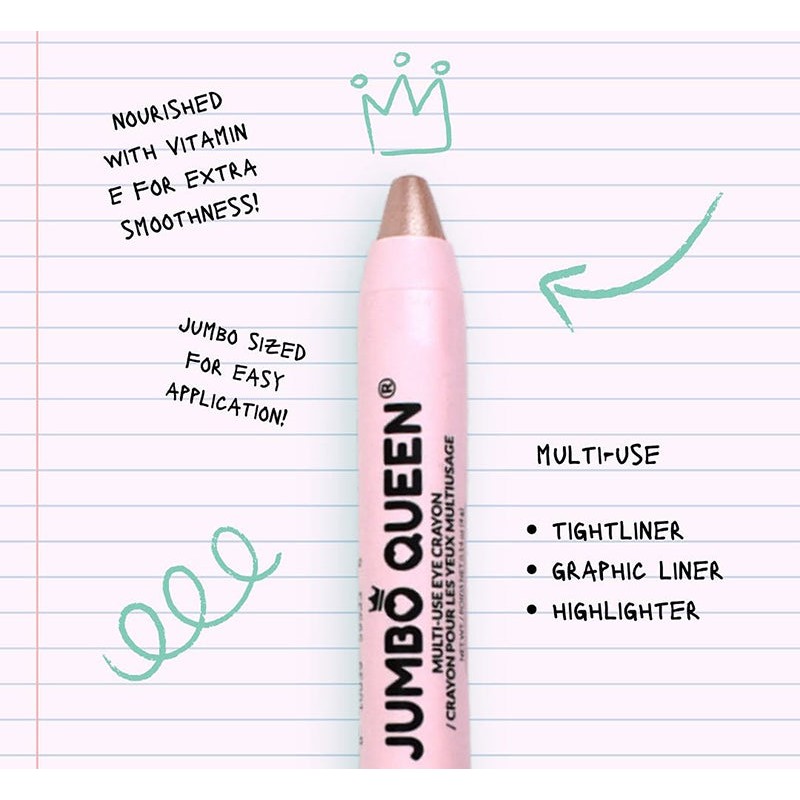 NOURISHED
WITH VITAMIN
E FOR EXTRA
SMOOTHNESS!
JUMBO SIZED
FOR EASY
APPLICATION!
MULTI-USE
• TIGHTLINER
• GRAPHIC LINER
• HIGHLIGHTER
JUMBO QUEEN®
MULTI-USE EYE CRAYON
/ CRAYON POUR LES YEUX MULTIUSAGE